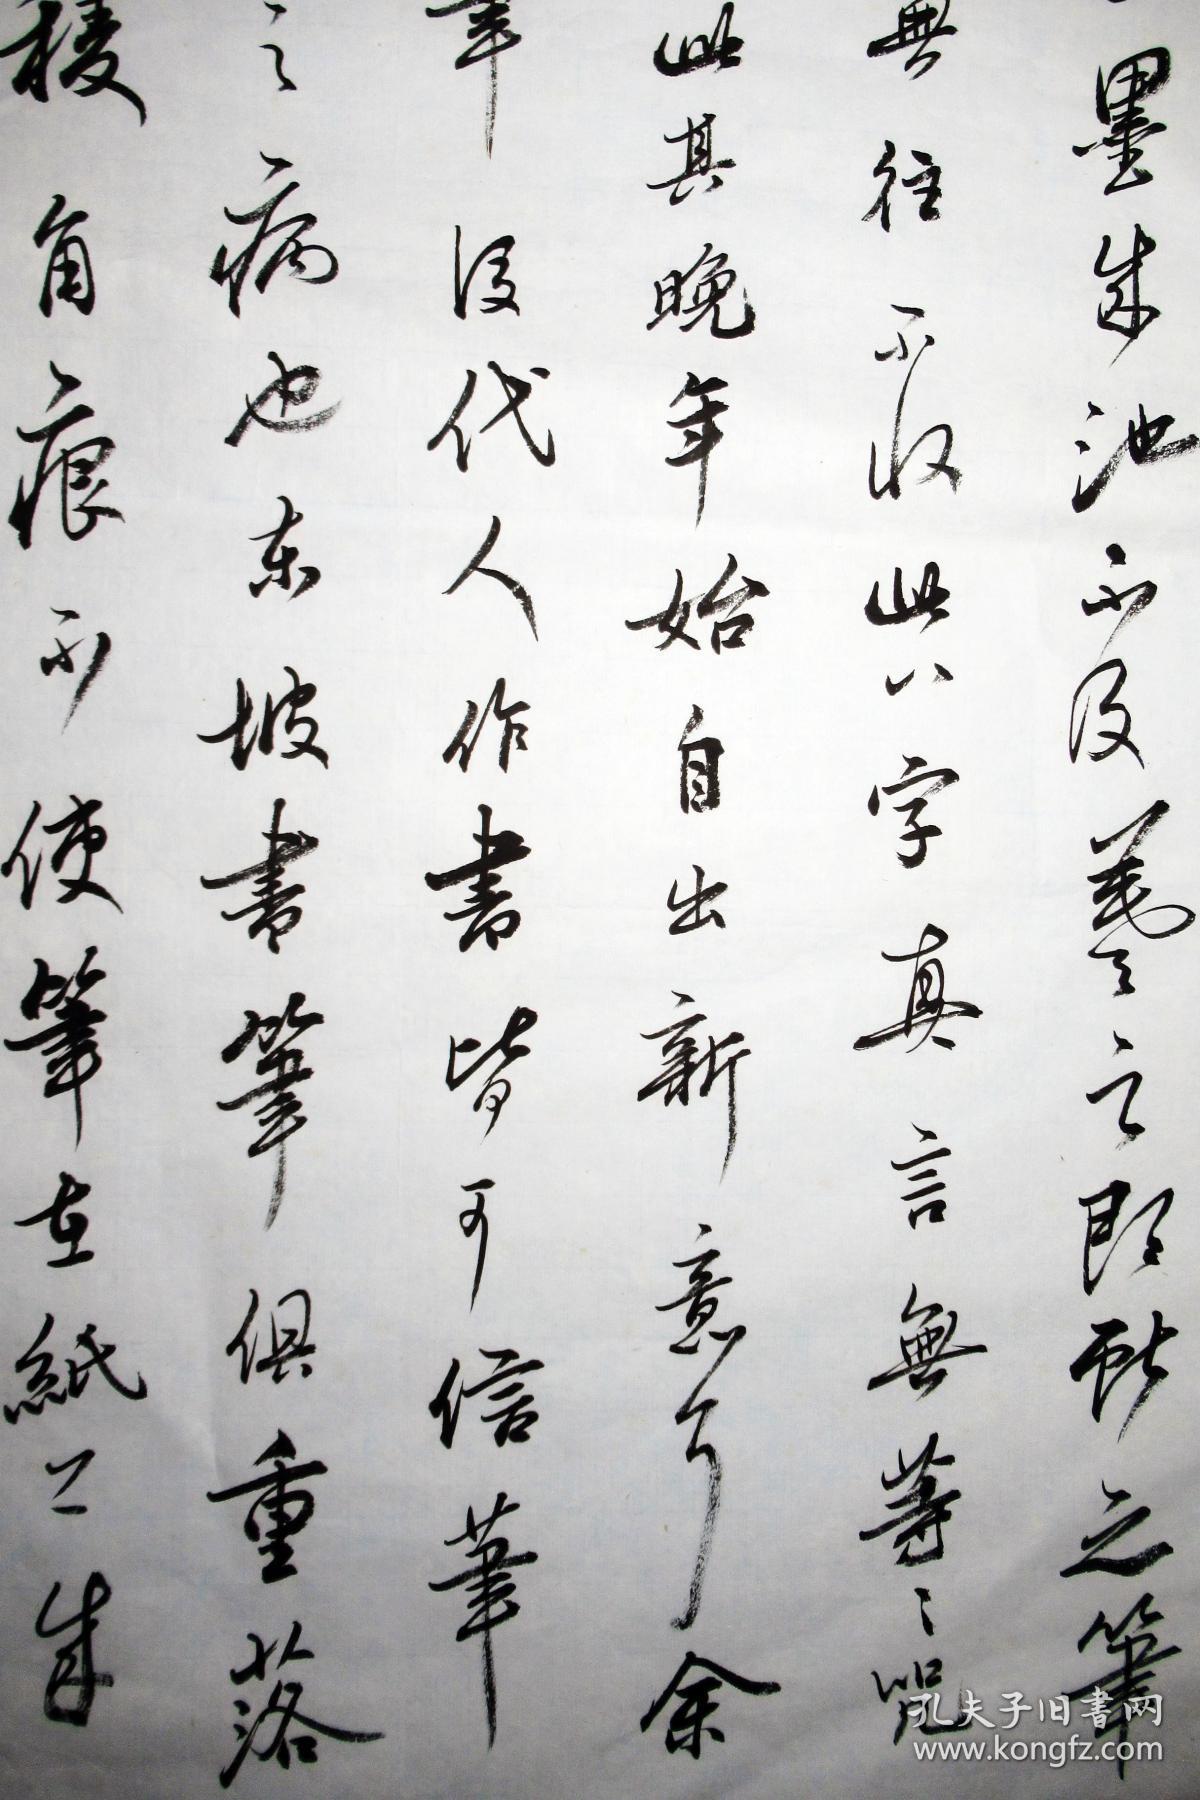 墨成池不及羲之即獻之筆
無往不收此八字真言無等〻咒
此其晚年始自出新意耳余
筆後代人作書皆可信筆
之病也东坡書筆俱重落
稜角痕不使筆在紙上成
孔夫子旧書网
www.kongfz.com